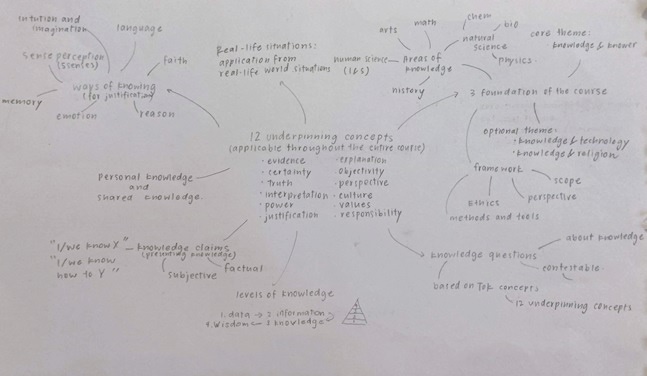 intution and
imagination
language
sense perception
(senses)
faith
ways of knowing
(for justification)
memory
emotion
reason
Real-life situations:
application from
real-life world situations
arts
math
chem
bio
natural
science
physics
human science
(I&S)
Areas of
knowledge
history
core theme:
knowledge & knower
3 foundation of the course
optional theme:
• knowledge & technology
• knowledge & religion
framework
scope
perspective
Ethics
methods and tools
12 underpinning concepts
(applicable throughout the entire course)
• evidence
• certainty
• Truth
• interpretation
• power
• justification
• explanation
• objectivity
• perspective
• culture
• values
• responsibility
Personal knowledge
and
shared knowledge
"I/we know X"
"I/we know
how to Y"
knowledge claims
(presenting knowledge)
subjective
factual
levels of knowledge
1. data → 2 information
4. Wisdom ← 3 knowledge
knowledge questions
about knowledge
contestable
based on TOK concepts
12 underpinning concepts